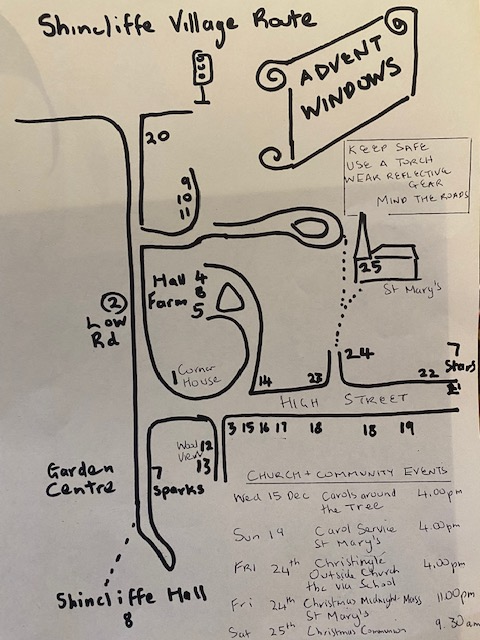 Shincliffe Village Route
ADVENT
WINDOWS
KEEP SAFE
USE A TORCH
WEAR REFLECTIVE
GEAR
MIND THE ROADS
20
9
10
11
25
St Mary's
Hall 4
Farm 8
5
2
Low
Rd
1 Corner
House
14
23
24
22
7
Stars
HIGH STREET
3 15 16 17 18 18 19
Wood
View
12
13
7
Sparks
Garden
Centre
Shincliffe Hall
8
CHURCH + COMMUNITY EVENTS
Wed 15 Dec Carols around 4.00pm
the Tree
Sun 19 Carol Service 4.00pm
St Mary's
FRI 24th Christingle 4.00pm
Outside Church
the via School
Fri 24th Christmas Midnight Mass 11.00pm
St Mary's
Sat 25th Christmas Common 9.30am